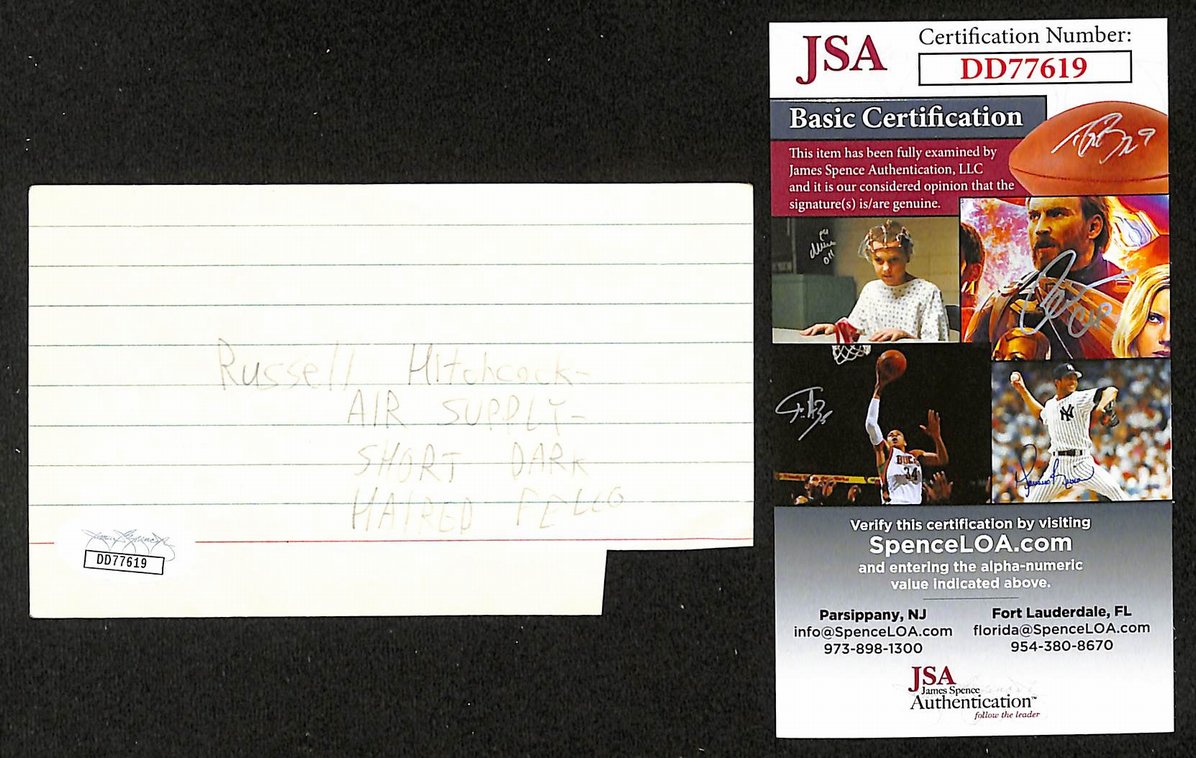 Russell Hitchcock-
AIR SUPPLY-
SHORT DARK
HAIRED FELLO
DD77619
JSA
Certification Number:
DD77619
Basic Certification
This item has been fully examined by
James Spence Authentication, LLC
and it is our considered opinion that the
signature(s) is/are genuine.
Verify this certification by visiting
SpenceLOA.com
and entering the alpha-numeric
value indicated above.
Parsippany, NJ
info@SpenceLOA.com
973-898-1300
Fort Lauderdale, FL
florida@SpenceLOA.com
954-380-8670
JSA
James Spence
Authentication™
follow the leader